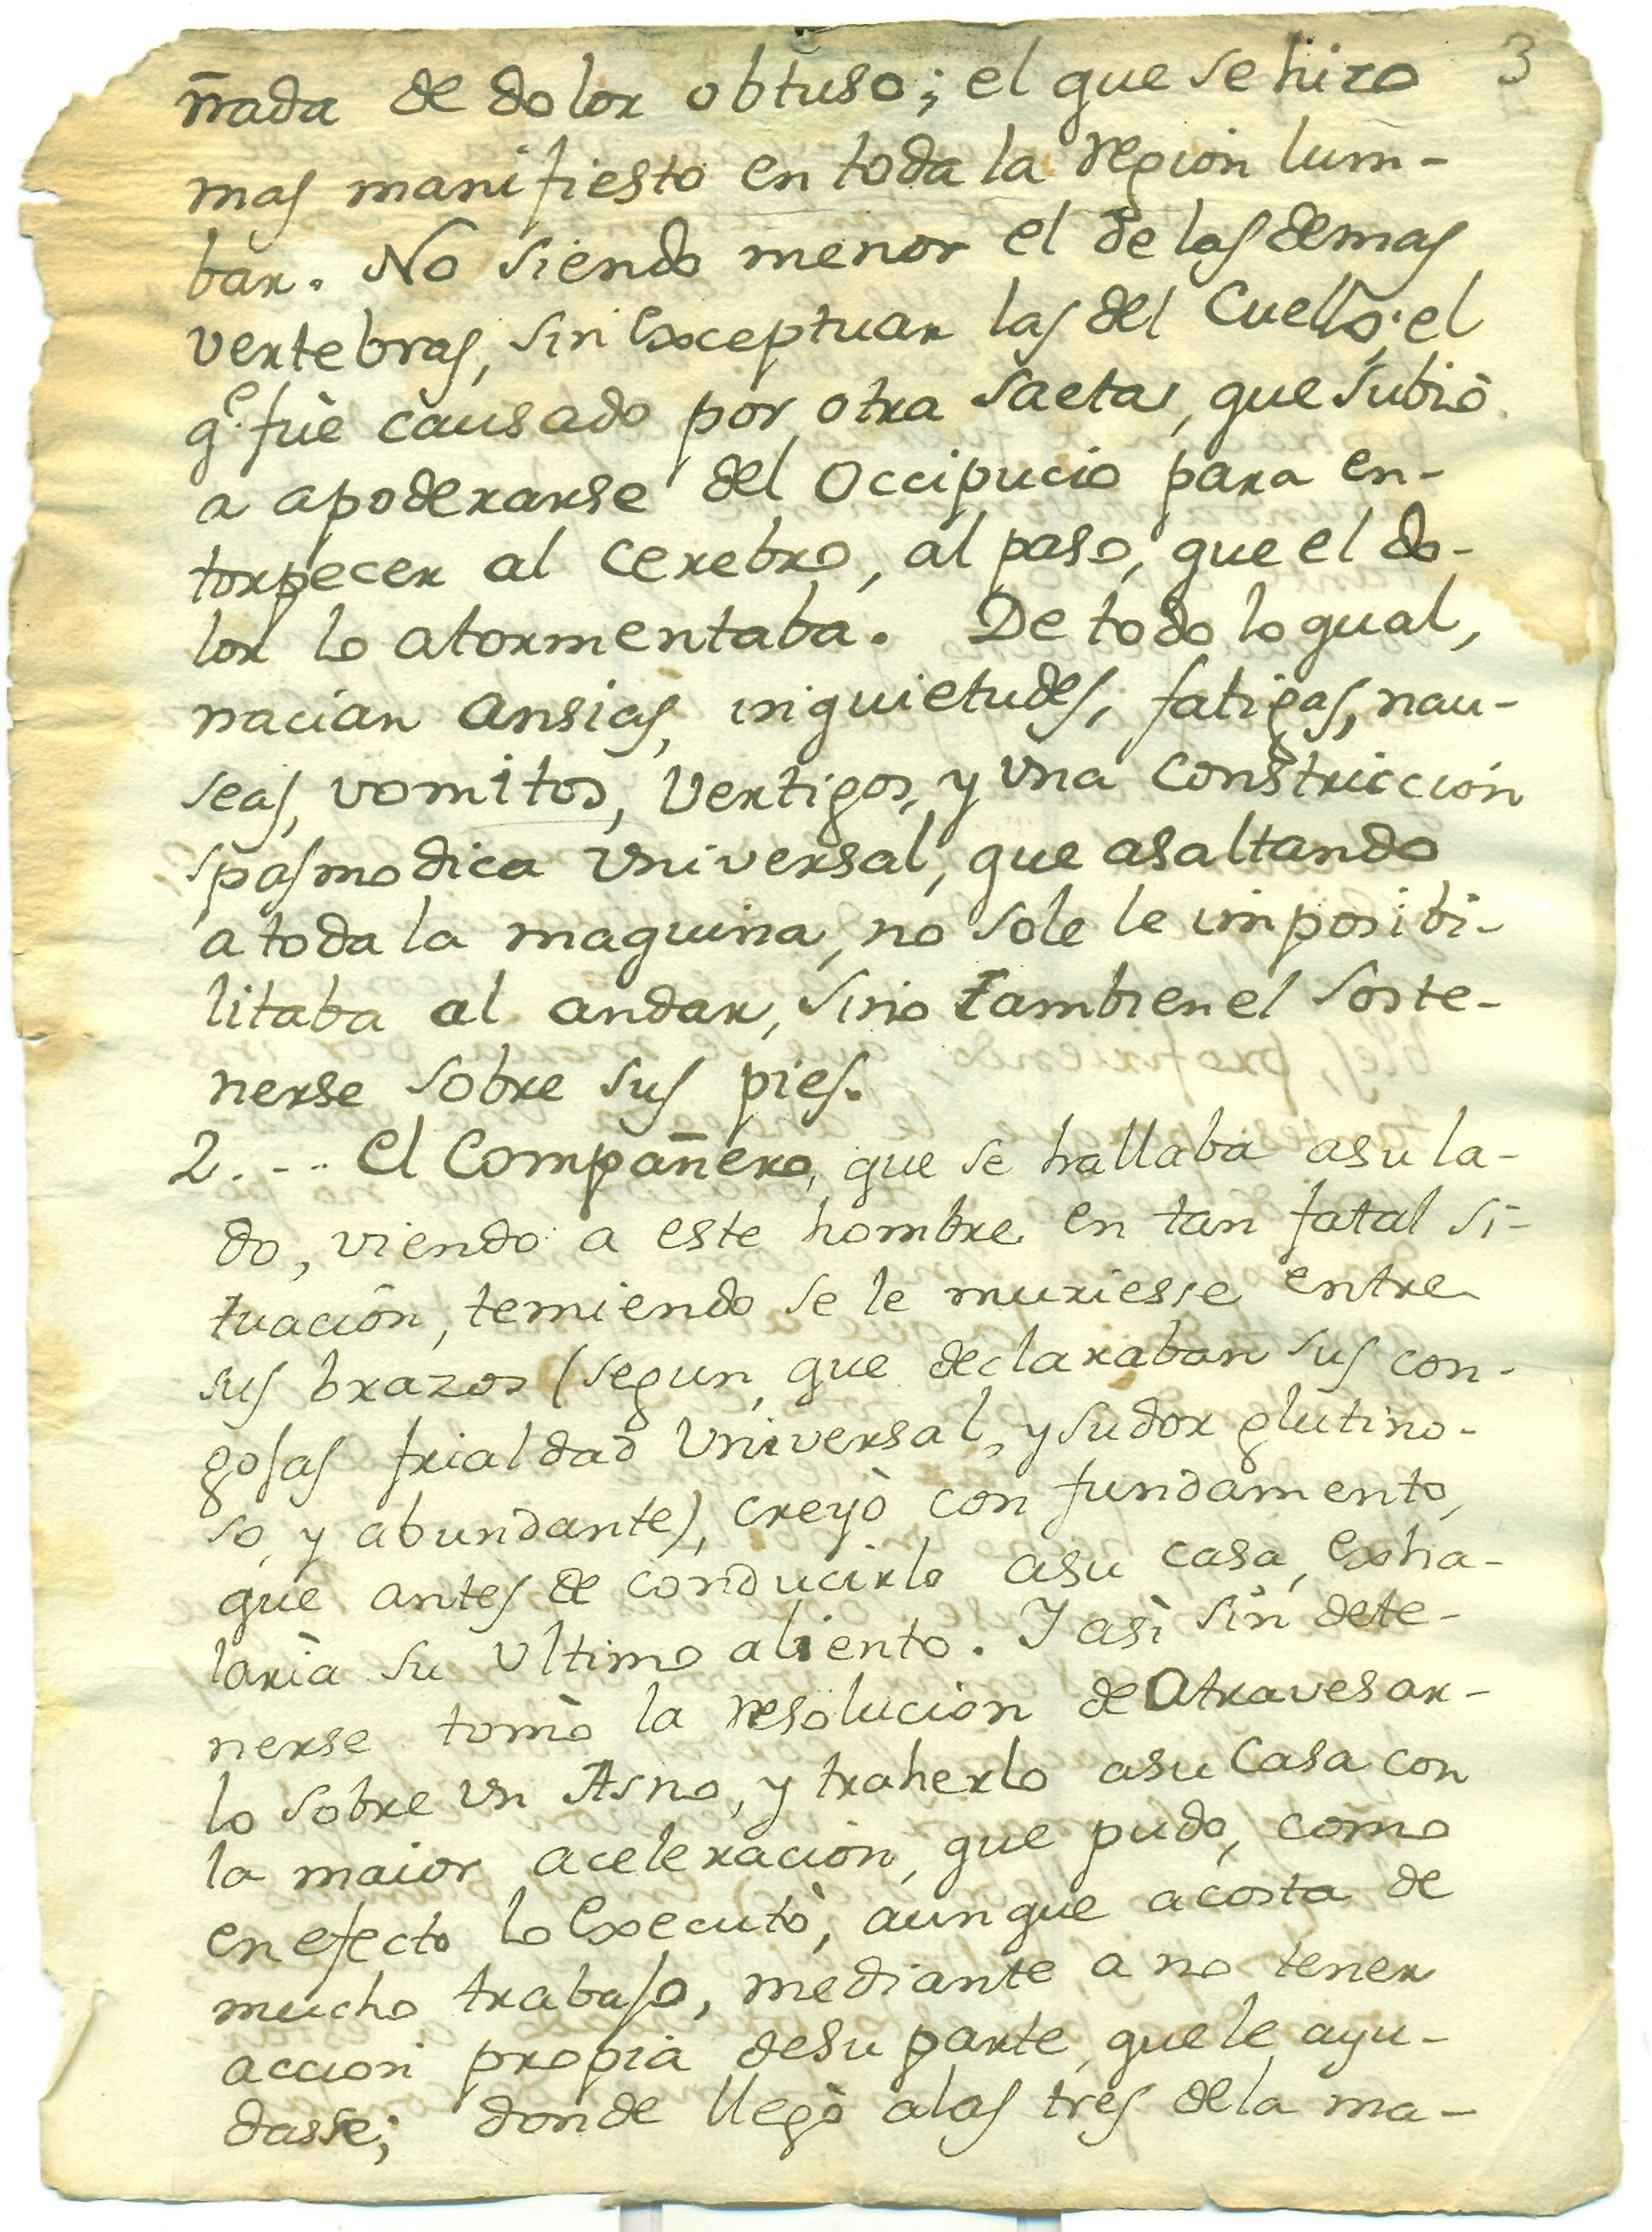 3
ñada de dolor obtuso; el que se hizo
mas manifiesto en toda la region lum-
bar. No siendo menor el de las demas
vertebras, sin Exceptuar las del Cuello; el
q.e fuè causado por otra saeta, que subiò
a apoderarse del Occipucio para en-
torpecer al cerebro, al paso, que el do-
lor lo atormentaba. De todo lo qual,
nacian ansias, inquietudes, fatigas, nau-
seas, vomitos, Vertigos, y vna Constriccion
spasmodica vniversal, que asaltando
a toda la maquina, no sole le imposibi-
litaba al andar, sino tambien el soste-
nerse sobre sus pies.
2. -- El Compañero, que se hallaba asu la-
do, viendo a este hombre en tan fatal si-
tuación, temiendo se le muriesse entre
sus brazos (segun, que declaraban sus con-
gosas frialdad Universal, y sudor glutino-
so, y abundante), creyò con fundamento,
que antes de conducirlo asu casa, Exha-
larìa su Ultimo aliento. Y asì sin dete-
nerse tomò la resolucion de Atravesar-
lo sobre vn Asno, y traherlo asu Casa con
la maior aceleracion, que pudo, como
en efecto lo Executò, aunque acosta de
mucho trabajo, mediante a no tener
accion propia desu parte, que le ayu-
dasse; donde llegò alas tres dela ma-